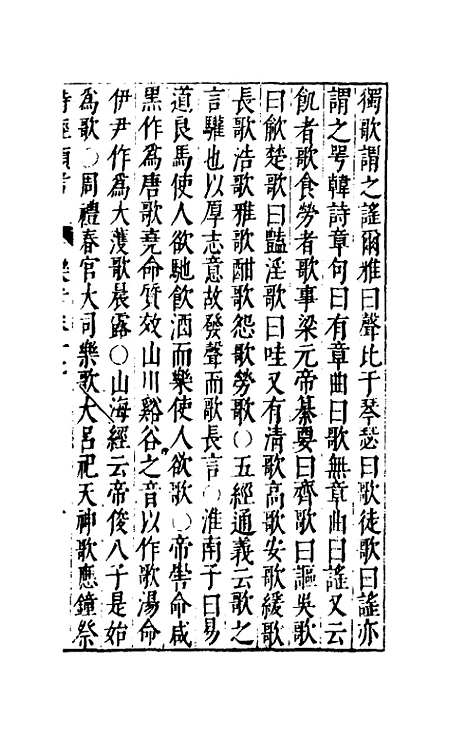 獨歌謂之謠爾雅曰聲比于琴瑟曰歌徒歌曰謠亦
謂之咢韓詩章句曰有章曲曰歌無章曲曰謠又云
飢者歌食勞者歌事梁元帝纂要曰齊歌曰謳吳歌
曰歈楚歌曰豔淫歌曰哇又有清歌高歌安歌緩歌
長歌浩歌雅歌酣歌怨歌勞歌○五經通義云歌之
言驩也以厚志意故發聲而歌長言○淮南子曰易
道良馬使人欲馳飲酒而樂使人欲歌○帝嚳命咸
黑作爲唐歌堯命質效山川谿谷之音以作歌湯命
伊尹作爲大濩歌晨露○山海經云帝俊八子是始
爲歌○周禮春官大司樂歌大呂祀天神歌應鐘祭